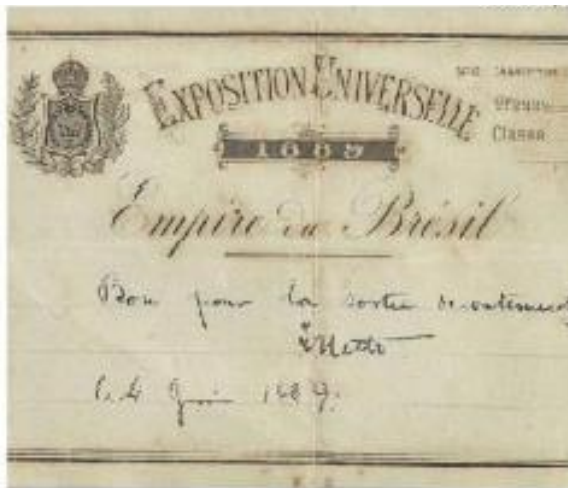 EXPOSITION UNIVERSELLE
Groupe
Classe
1889
Empire du Brésil
Bon pour la sortie
Netto
le 4 Juin 1889.